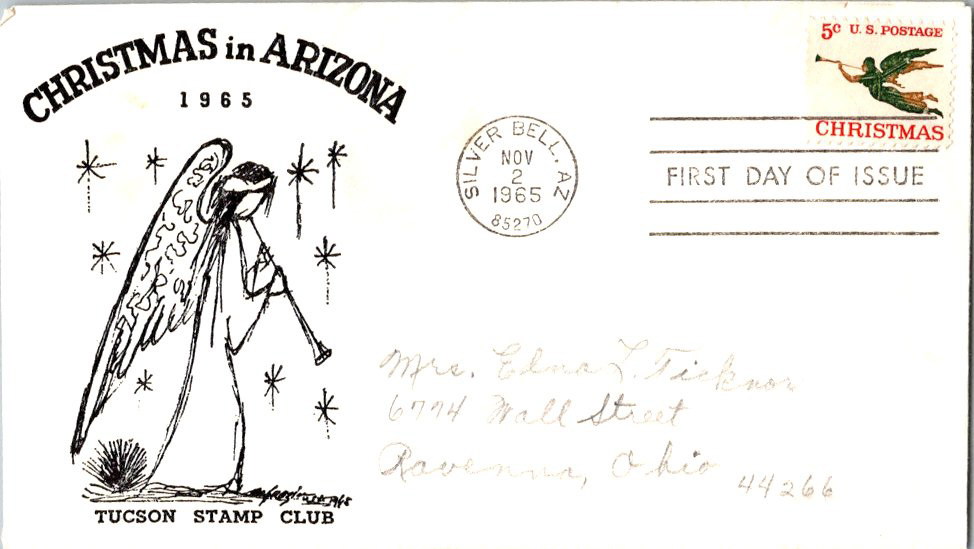 CHRISTMAS in ARIZONA
1965
5c U.S. POSTAGE
CHRISTMAS
SILVER BELL, AZ
NOV
2
1965
85270
FIRST DAY OF ISSUE
Mrs. Elma L. Ticknor
6774 Wall Street
Ravenna, Ohio
44266
TUCSON STAMP CLUB